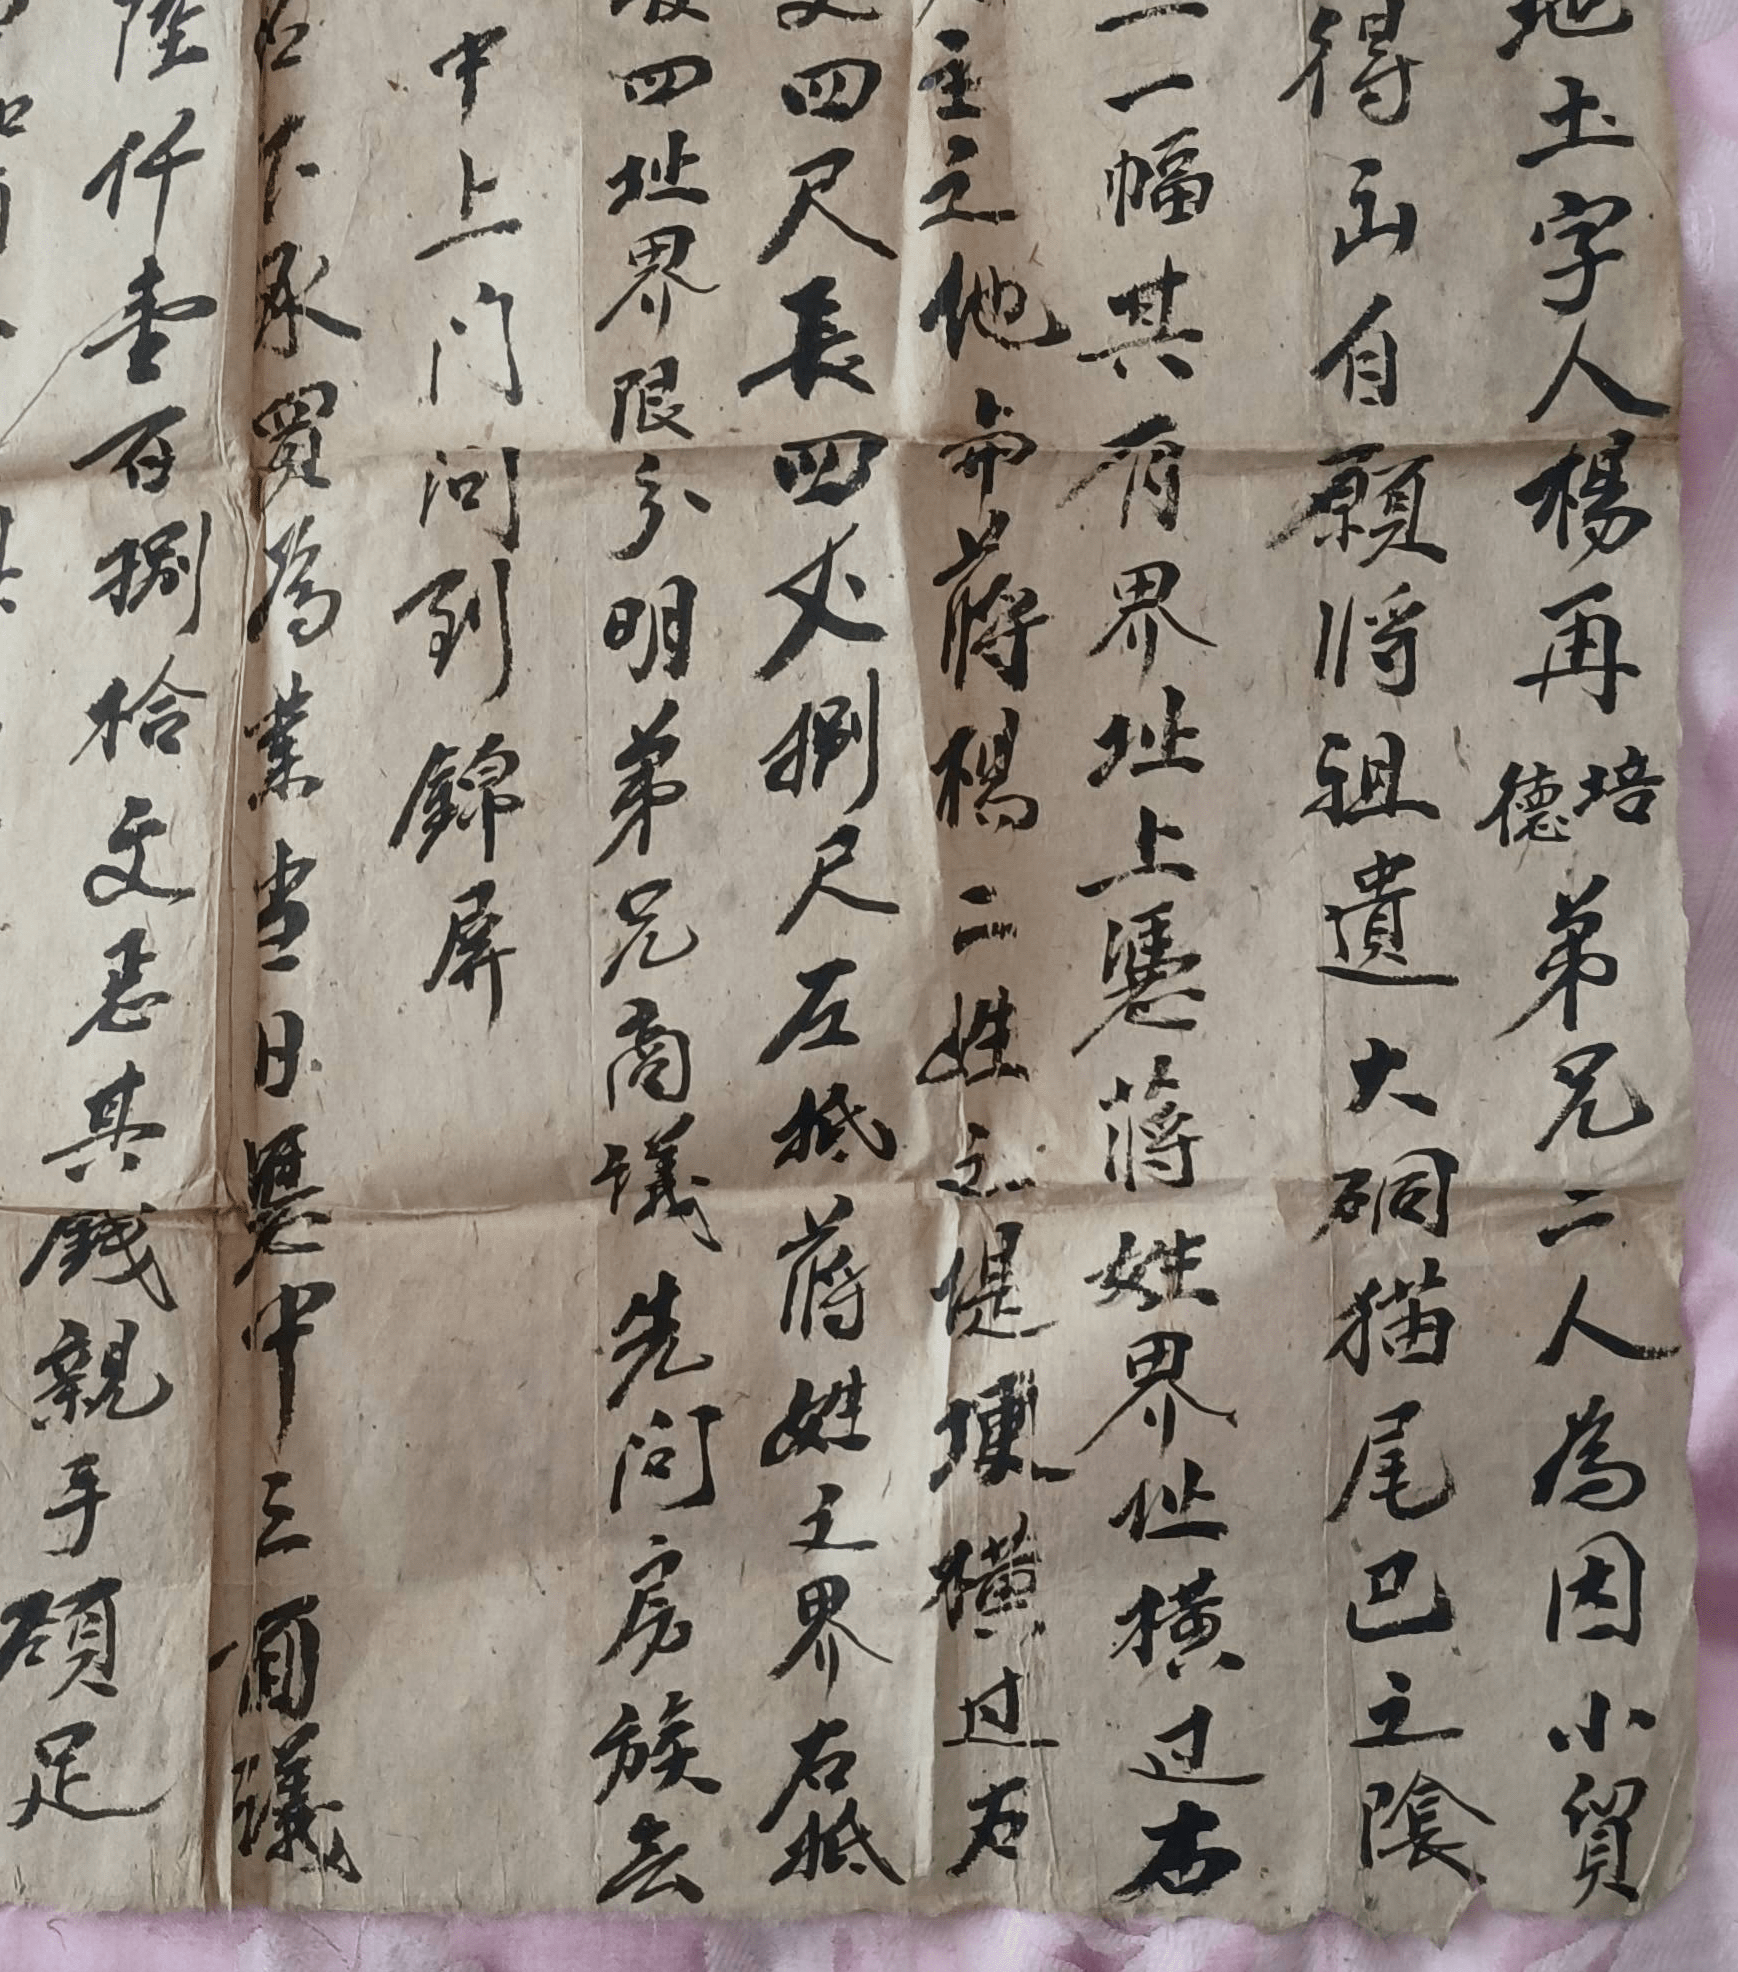 地土字人楊再培德弟兄二人為因小貿
得而自願將祖遺大硐猫尾巴之陰
一一幅其有界址上憑蔣姓界址橫过右
主之地 蔣楊二姓之堤埂橫过右
丈四尺長四丈捌尺左抵蔣姓之界右抵
四址界限分明弟兄商議先问房族去
中上门问到錦屏
名下承買為業当日憑中三面議
陸仟壹百捌拾文忌其錢親手領足